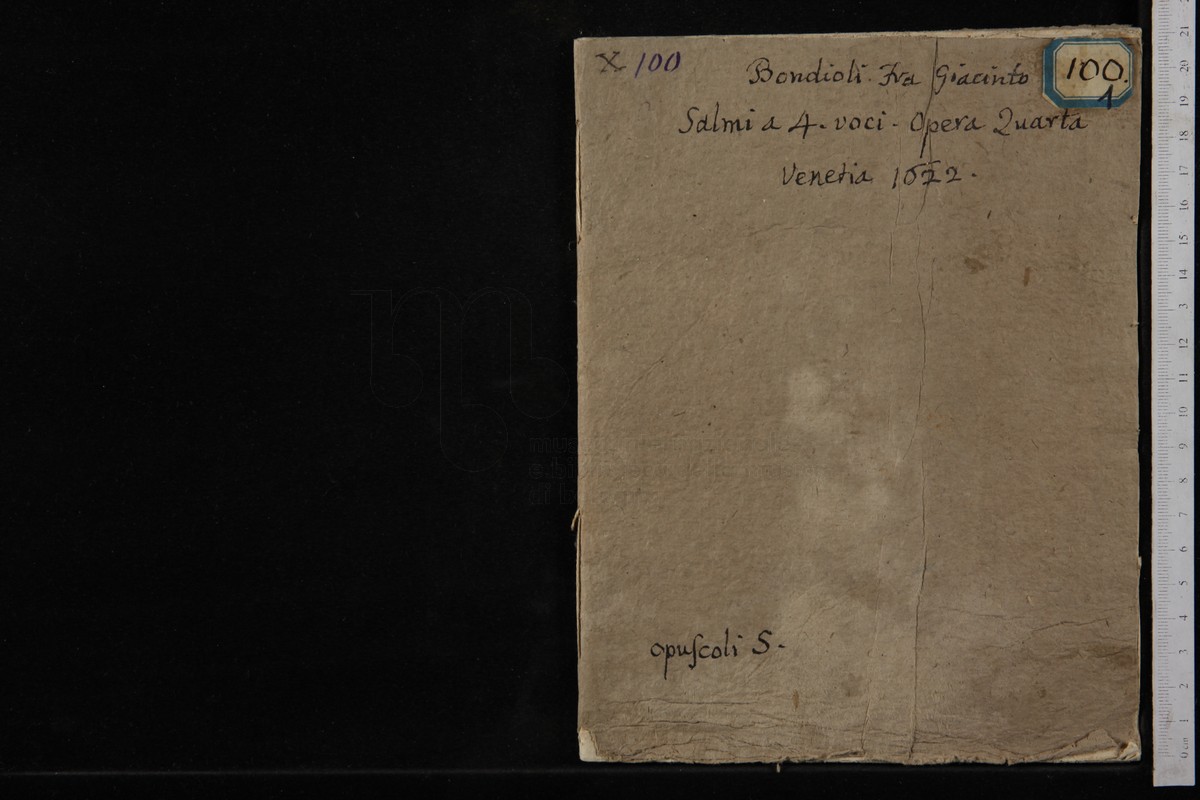 X 100
100.
1
Bondioli. Fra Giacinto
Salmi a 4. voci. Opera Quarta
Venetia 1622.
opuſcoli S.
21
20
19
18
17
16
15
14
13
12
11
10
9
8
7
6
5
4
3
2
1
0 cm